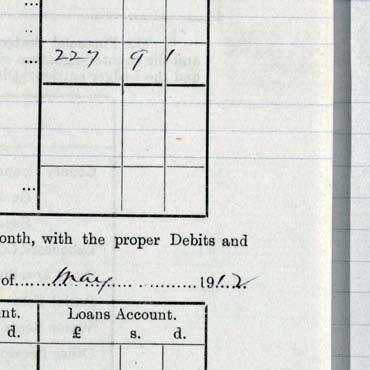 ...
..
... 227 9 1
...
onth, with the proper Debits and
of......May...............1912
nt. Loans Account.
d. £ s. d.